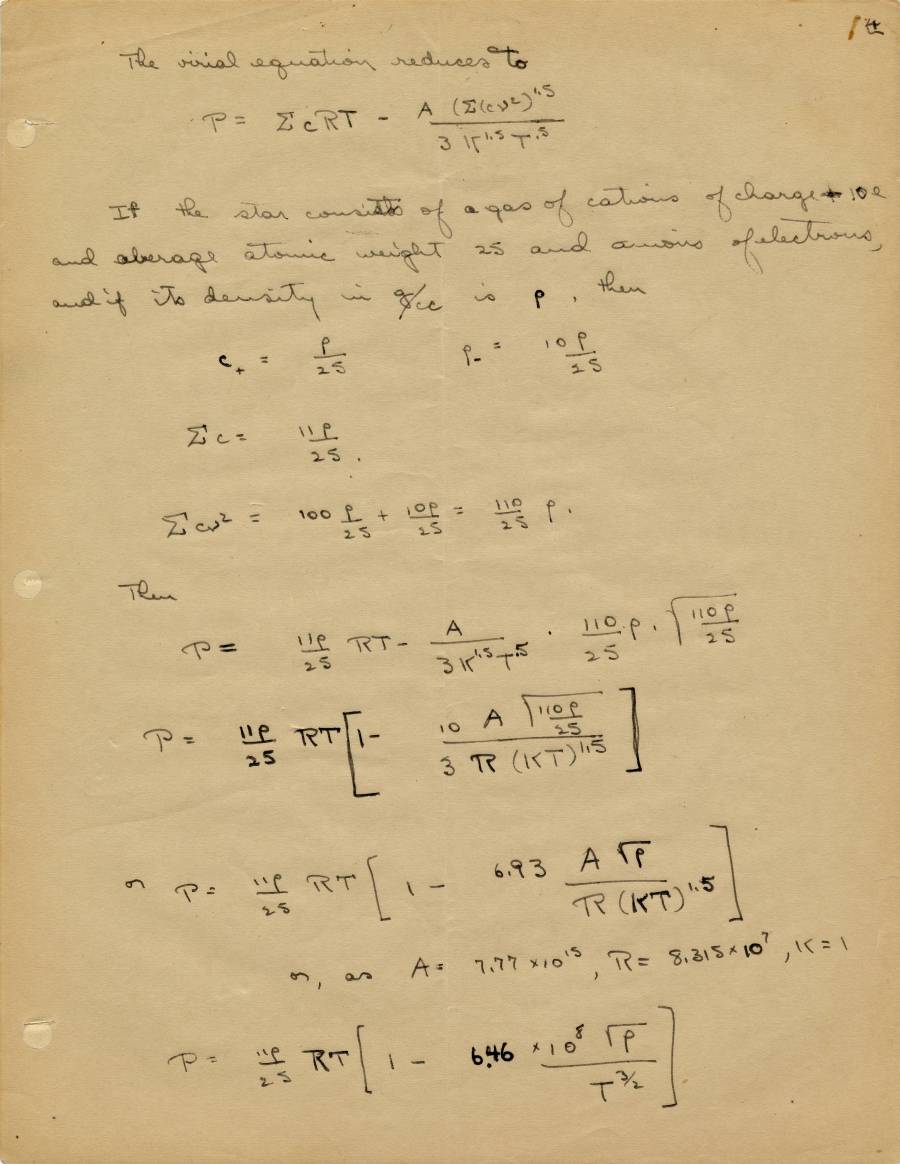 14
The virial equation reduces to
P = ΣcRT - A (Σ(cν²)^1.5 / 3 K^1.5 T^.5
If the star consists of a gas of cations of charge + 10e
and average atomic weight 25 and anions of electrons,
and if its density in g/cc is ρ, then
c₊ = ρ/25 ρ₋ = 10ρ/25
Σc = 11ρ/25.
Σcν² = 100 ρ/25 + 10ρ/25 = 110/25 ρ.
Then
P = 11ρ/25 RT - A / 3K^1.5 T^.5 · 110/25 ρ · √(110ρ/25)
P = 11ρ/25 RT [1 - 10 A √(110ρ/25) / 3 R (KT)^1.5]
or P = 11ρ/25 RT [1 - 6.93 A √ρ / R (KT)^1.5]
or, as A = 7.77 × 10^15, R = 8.315 × 10^7, K = 1
P = 11ρ/25 RT [1 - 6.46 × 10^8 √ρ / T^3/2]